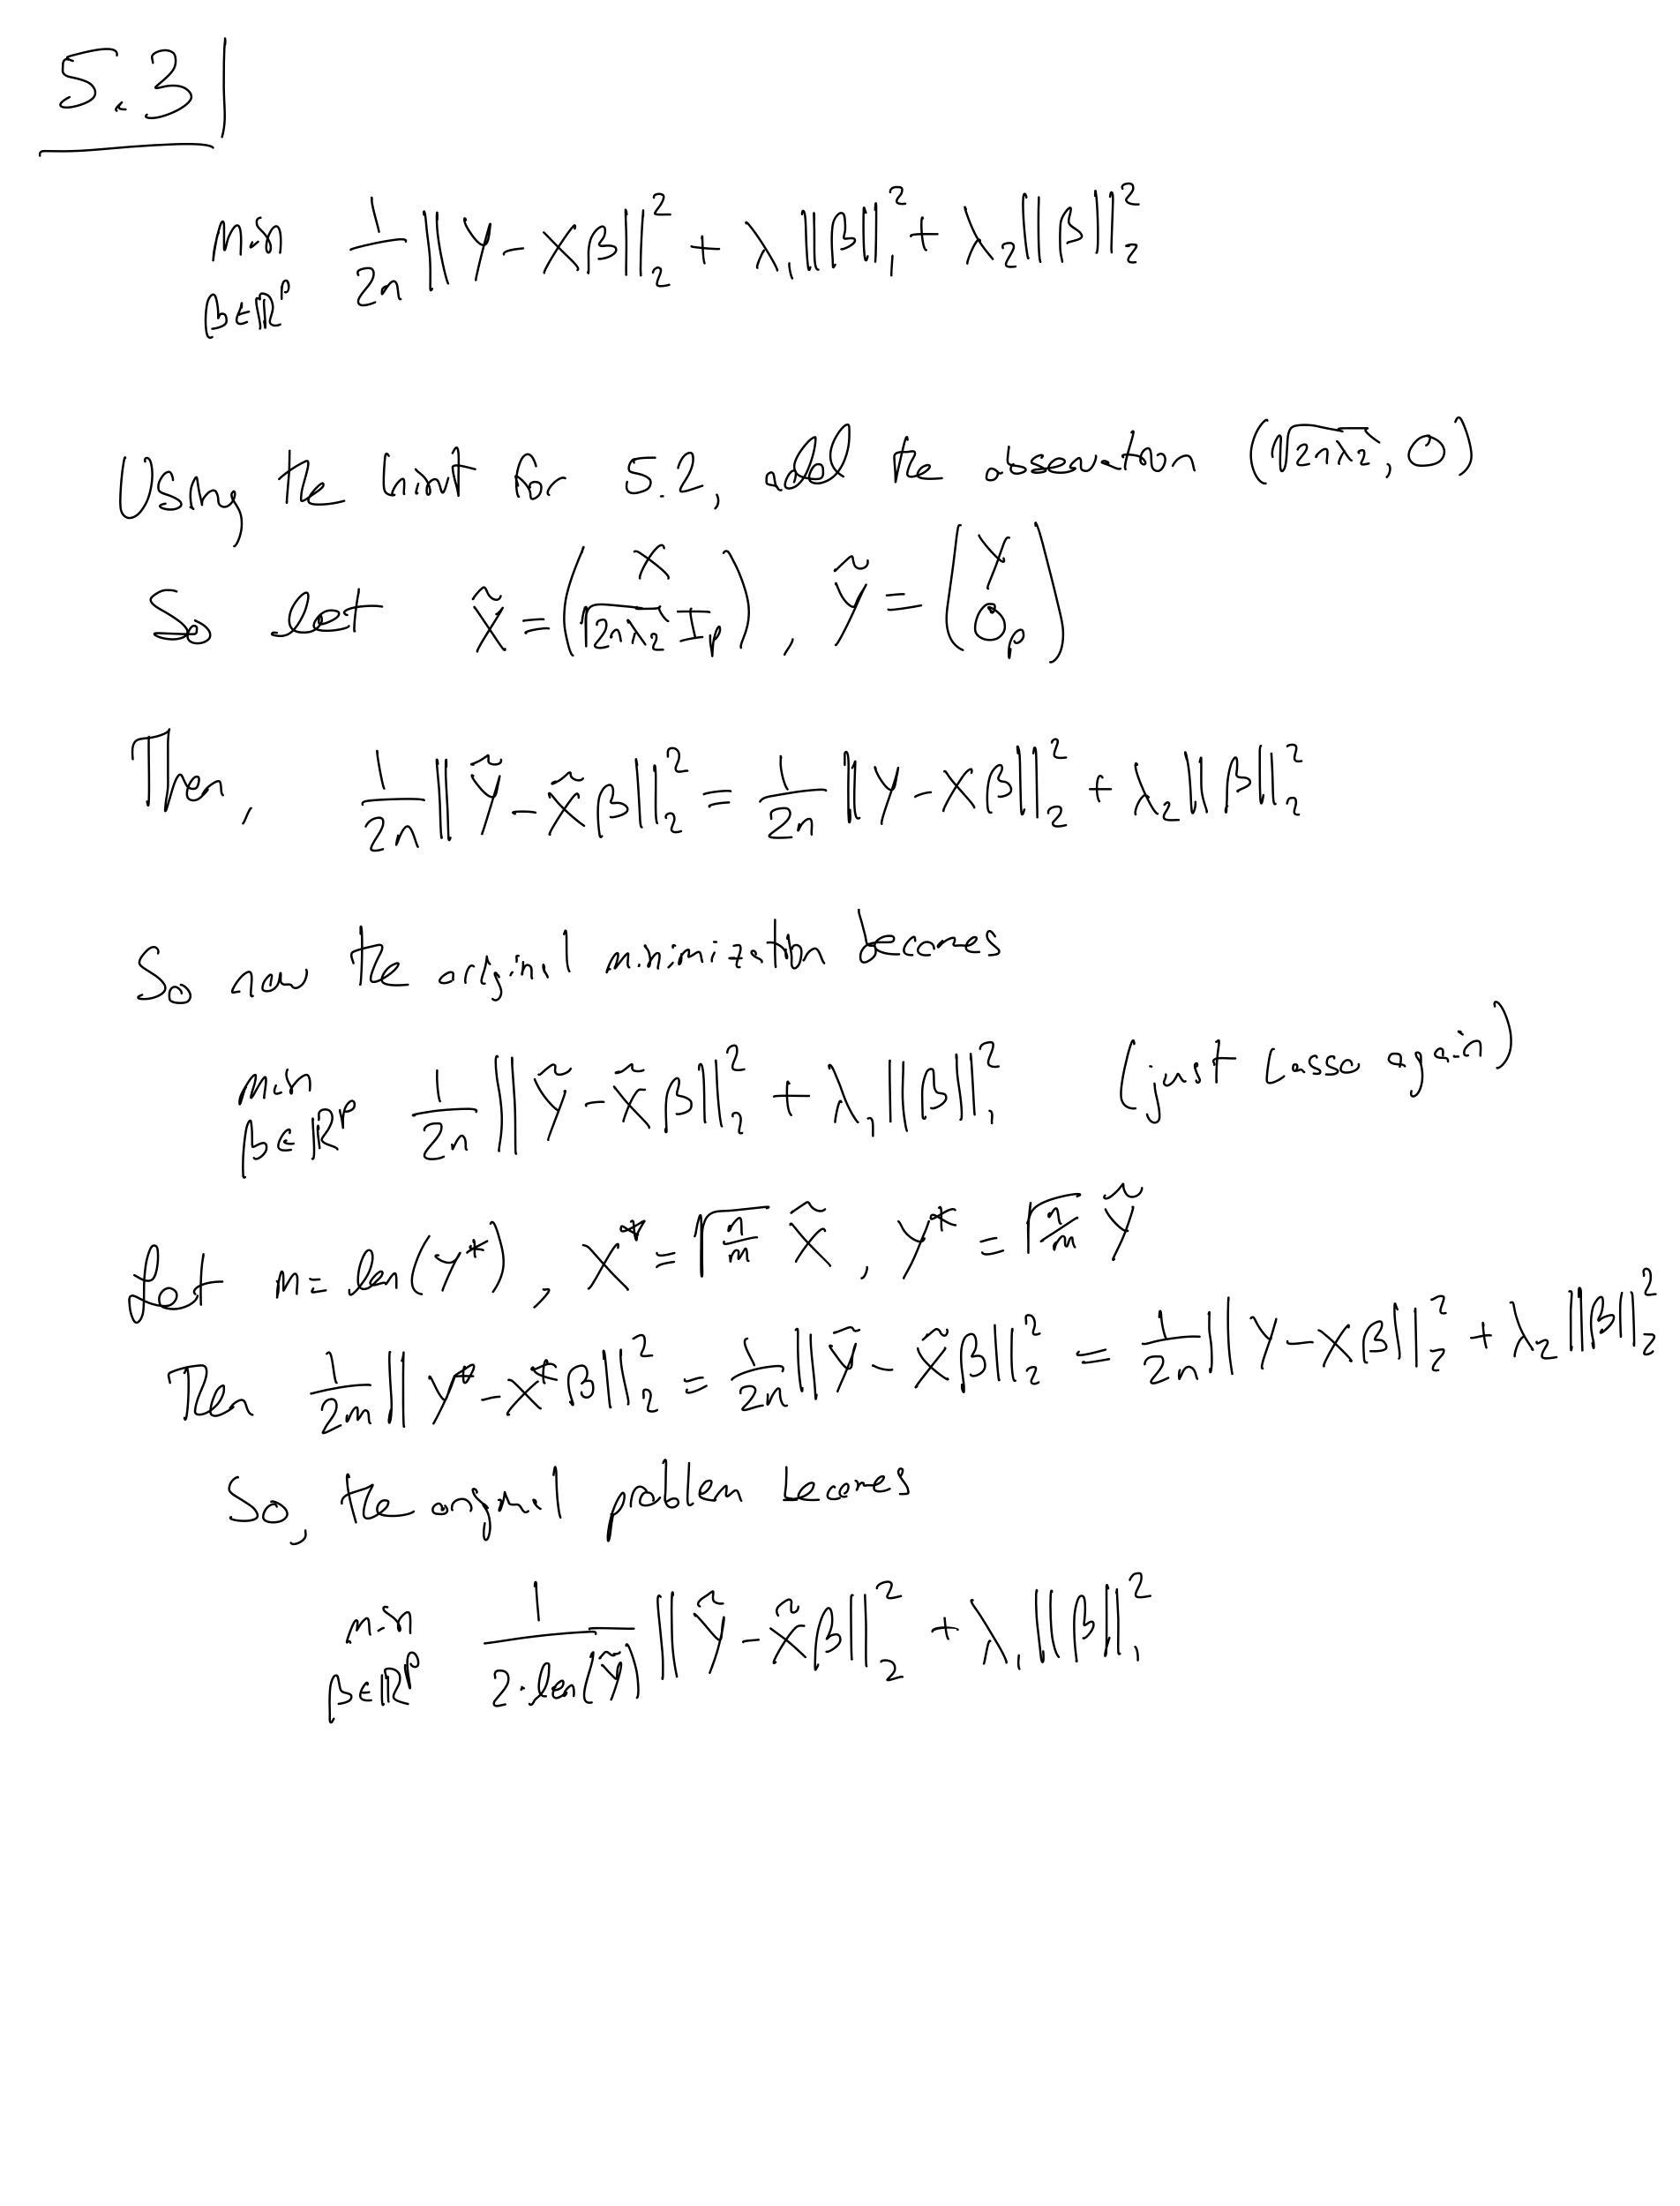 5.3
min β∈ℝᵖ 1/2n ||Y - Xβ||₂² + λ₁||β||₁² + λ₂||β||₂²
Using the hint for 5.2, add the observation (√(2nλ₂), 0)
So let X̃ = (X / √(2nλ₂) I_p), Ỹ = (Y / 0_p)
Then, 1/2n ||Ỹ - X̃β||₂² = 1/2n ||Y - Xβ||₂² + λ₂||β||₂²
So now the original minimization becomes
min β∈ℝᵖ 1/2n ||Ỹ - X̃β||₂² + λ₁||β||₁² (just Lasso again)
Let m = len(Y*), X* = √(n/m) X̃, Y* = √(n/m) Ỹ
Then 1/2m ||Y* - X*β||₂² = 1/2n ||Ỹ - X̃β||₂² = 1/2n ||Y - Xβ||₂² + λ₂||β||₂²
So, the original problem becomes
min β∈ℝᵖ 1/(2·len(Ỹ)) ||Ỹ - X̃β||₂² + λ₁||β||₁²